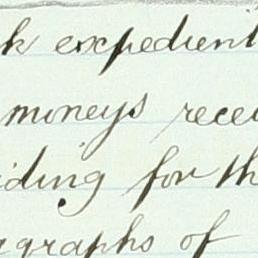 k expedient
moneys recei
iding for th
agraphs of